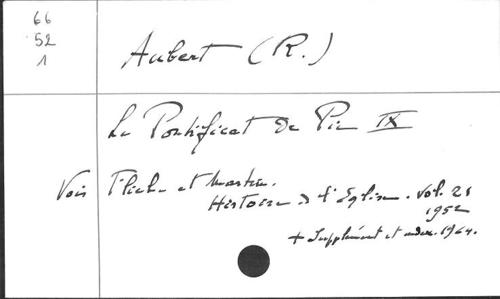 66
52
1
Aubert (R.)
Le Pontificat de Pie IX
Voir Fliche et Martin.
Histoire de l'Eglise. vol. 21
1952
+ Supplément et index. 1964.